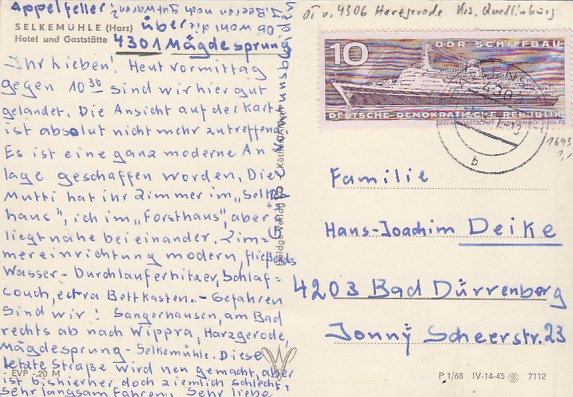 Appelfeller
über
4301 Mägdesprung
SELKEMÜHLE (Harz)
Hotel und Gaststätte
Ihr lieben! Heut vormittag
gegen 10 30 sind wir hier gut
gelandet. Die Ansicht auf der Karte
ist absolut nicht mehr zutreffend.
Es ist eine ganz moderne An-
lage geschaffen worden, Die
Mutti hat ihr Zimmer im „Selke-
haus", ich im „Forsthaus", aber es
liegt nahe bei einander. Zim-
mereinrichtung modern, fließends
Wasser - Durchlauferhitzer, Schlaf-
couch, extra Bettkasten. - Gefahren
sind wir: Sangerhausen, am Bad
rechts ab nach Wippra, Harzgerode,
Mägdesprung - Selkemühle. Diese
letzte Straße wird neu gemacht, aber
ist bisher doch ziemlich schlecht,
sehr langsam fahren! Sehr liebe
EVP -,20 M
ÖT v. 4306 Harzgerode Krs. Quedlinburg
10 DDR SCHIFFBAU
DEUTSCHE DEMOKRATISCHE REPUBLIK
1693
b
Familie
Hans-Joachim Deike
4203 Bad Dürrenberg
Jonny Scheerstr. 23
P 1/68 IV-14-45 7112